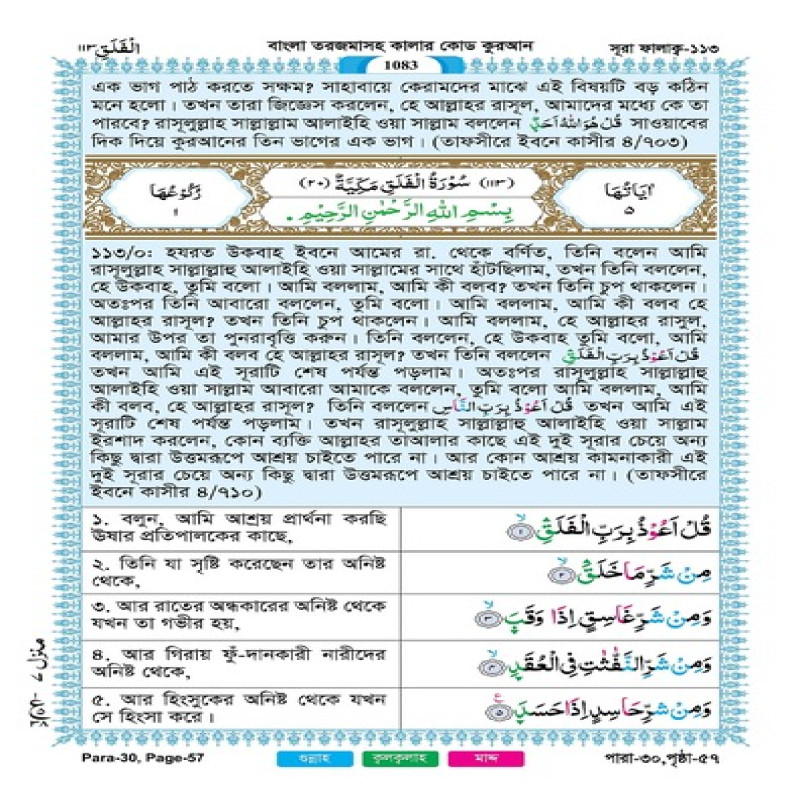 الْفَلَقِ-١١٣ বাংলা তরজমাসহ কালার কোড কুরআন সূরা ফালাক্ব-১১৩
1083
এক ভাগ পাঠ করতে সক্ষম? সাহাবায়ে কেরামদের মাঝে এই বিষয়টি বড় কঠিন
মনে হলো। তখন তারা জিজ্ঞেস করলেন, হে আল্লাহর রাসূল, আমাদের মধ্যে কে তা
পারবে? রাসূলুল্লাহ সাল্লাল্লাম আলাইহি ওয়া সাল্লাম বললেন قُلْ هُوَ اللهُ اَحَدٌ সাওয়াবের
দিক দিয়ে কুরআনের তিন ভাগের এক ভাগ। (তাফসীরে ইবনে কাসীর ৪/৭০৩)
اٰيَاتُهَا ٥ (١١٣) سُوْرَةُ الْفَلَقِ مَكِّيَّةٌ (٢٠) رُكُوْعُهَا ١
بِسْمِ اللهِ الرَّحْمٰنِ الرَّحِيْمِ
১১৩/০: হযরত উকবাহ ইবনে আমের রা. থেকে বর্ণিত, তিনি বলেন আমি
রাসূলুল্লাহ সাল্লাল্লাহু আলাইহি ওয়া সাল্লামের সাথে হাঁটছিলাম, তখন তিনি বললেন,
হে উকবাহ, তুমি বলো। আমি বললাম, আমি কী বলব? তখন তিনি চুপ থাকলেন।
অতঃপর তিনি আবারো বললেন, তুমি বলো। আমি বললাম, আমি কী বলব হে
আল্লাহর রাসূল? তখন তিনি চুপ থাকলেন। আমি বললাম, হে আল্লাহর রাসূল,
আমার উপর তা পুনরাবৃত্তি করুন। তিনি বললেন, হে উকবাহ তুমি বলো, আমি
বললাম, আমি কী বলব হে আল্লাহর রাসূল? তখন তিনি বললেন قُلْ اَعُوْذُ بِرَبِّ الْفَلَقِ
তখন আমি এই সূরাটি শেষ পর্যন্ত পড়লাম। অতঃপর রাসূলুল্লাহ সাল্লাল্লাহু
আলাইহি ওয়া সাল্লাম আবারো আমাকে বললেন, তুমি বলো আমি বললাম, আমি
কী বলব, হে আল্লাহর রাসূল? তিনি বললেন قُلْ اَعُوْذُ بِرَبِّ النَّاسِ তখন আমি এই
সূরাটি শেষ পর্যন্ত পড়লাম। তখন রাসূলুল্লাহ সাল্লাল্লাহু আলাইহি ওয়া সাল্লাম
ইরশাদ করলেন, কোন ব্যক্তি আল্লাহর তাআলার কাছে এই দুই সূরার চেয়ে অন্য
কিছু দ্বারা উত্তমরূপে আশ্রয় চাইতে পারে না। আর কোন আশ্রয় কামনাকারী এই
দুই সূরার চেয়ে অন্য কিছু দ্বারা উত্তমরূপে আশ্রয় চাইতে পারে না। (তাফসীরে
ইবনে কাসীর ৪/৭১০)
قُلْ اَعُوْذُ بِرَبِّ الْفَلَقِ ۙ﴿١﴾
১. বলুন, আমি আশ্রয় প্রার্থনা করছি
ঊষার প্রতিপালকের কাছে,
مِنْ شَرِّ مَا خَلَقَ ۙ﴿٢﴾
২. তিনি যা সৃষ্টি করেছেন তার অনিষ্ট
থেকে,
وَمِنْ شَرِّ غَاسِقٍ اِذَا وَقَبَ ۙ﴿٣﴾
৩. আর রাতের অন্ধকারের অনিষ্ট থেকে
যখন তা গভীর হয়,
وَمِنْ شَرِّ النَّفّٰثٰتِ فِي الْعُقَدِ ۙ﴿٤﴾
৪. আর গিরায় ফুঁ-দানকারী নারীদের
অনিষ্ট থেকে,
وَمِنْ شَرِّ حَاسِدٍ اِذَا حَسَدَ ۧ﴿٥﴾
৫. আর হিংসুকের অনিষ্ট থেকে যখন
সে হিংসা করে।
منزل ٧
Para-30, Page-57 গুন্নাহ ক্বলক্বলাহ মাদ্দ পারা-৩০,পৃষ্ঠা-৫৭